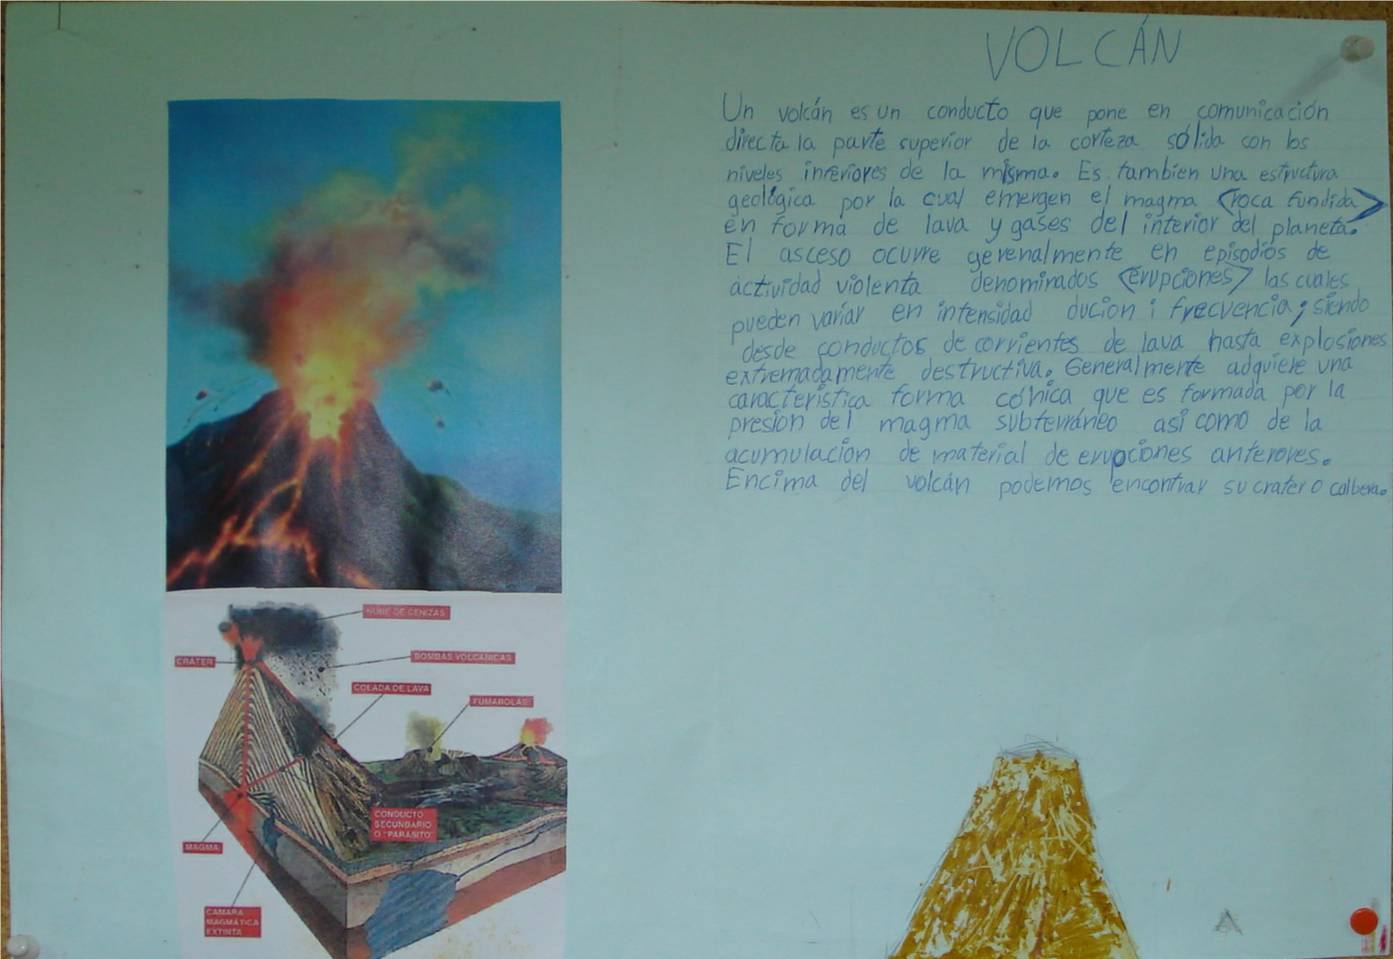 VOLCÁN
Un volcán es un conducto que pone en comunicación
directa la parte superior de la corteza sólida con los
niveles inferiores de la misma. Es tambien una estructura
geológica por la cual emergen el magma <roca fundida>
en forma de lava y gases del interior del planeta.
El asceso ocurre gerenalmente en episodios de
actividad violenta denominados <erupciones> las cuales
pueden variar en intensidad ducion i frecvencia; siendo
desde conductos de corrientes de lava hasta explosiones
extremadamente destructiva. Generalmente adquiere una
característica forma cónica que es formada por la
presion del magma subterráneo así como de la
acumulación de material de erupciones anterores.
Encima del volcán podemos encontrar su crater o calbera.
NUBE DE CENIZAS
CRÁTER
BOMBAS VOLCÁNICAS
COLADA DE LAVA
FUMAROLAS
CONDUCTO
SECUNDARIO
O "PARÁSITO"
MAGMA
CAMARA
MAGMÁTICA
EXTINTA